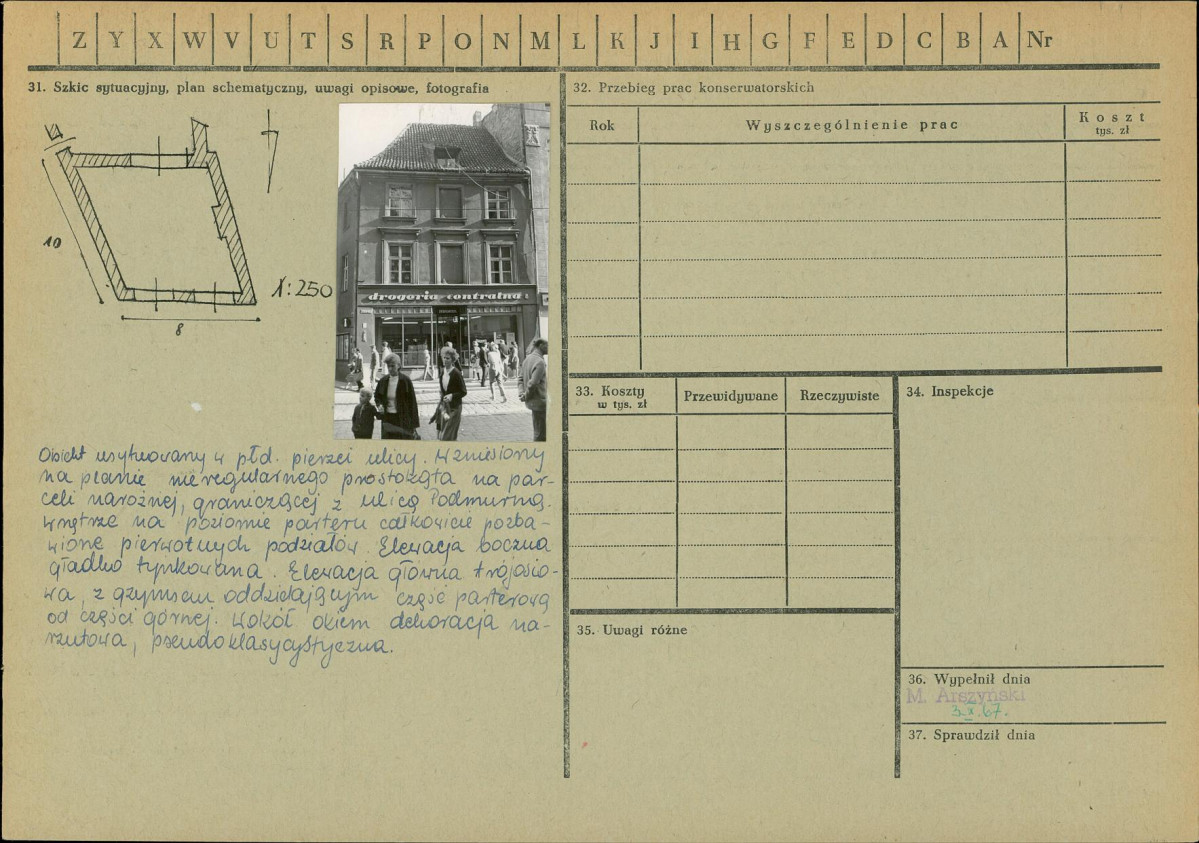 Z Y X W V U T S R P O N M L K J I H G F E D C B A Nr
31. Szkic sytuacyjny, plan schematyczny, uwagi opisowe, fotografia
10
8
1:250
drogeria centralna
Obiekt usytuowany w płd. pierzei ulicy. Wzniesiony
na planie nieregularnego prostokąta na par-
celi narożnej, graniczącej z ulicą Podmurną.
Wnętrze na poziomie parteru całkowicie pozba-
wione pierwotnych podziałów. Elewacja boczna
gładko tynkowana. Elewacja główna trójosio-
wa, z gzymsem oddzielającym część parterową
od części górnej. Wokół okien dekoracja na-
rzutowa, pseudoklasycystyczna.
32. Przebieg prac konserwatorskich
Rok
Wyszczególnienie prac
Koszt
tys. zł
33. Koszty
w tys. zł
Przewidywane
Rzeczywiste
34. Inspekcje
35. Uwagi różne
36. Wypełnił dnia
M. Arszyński
3.X.67.
37. Sprawdził dnia